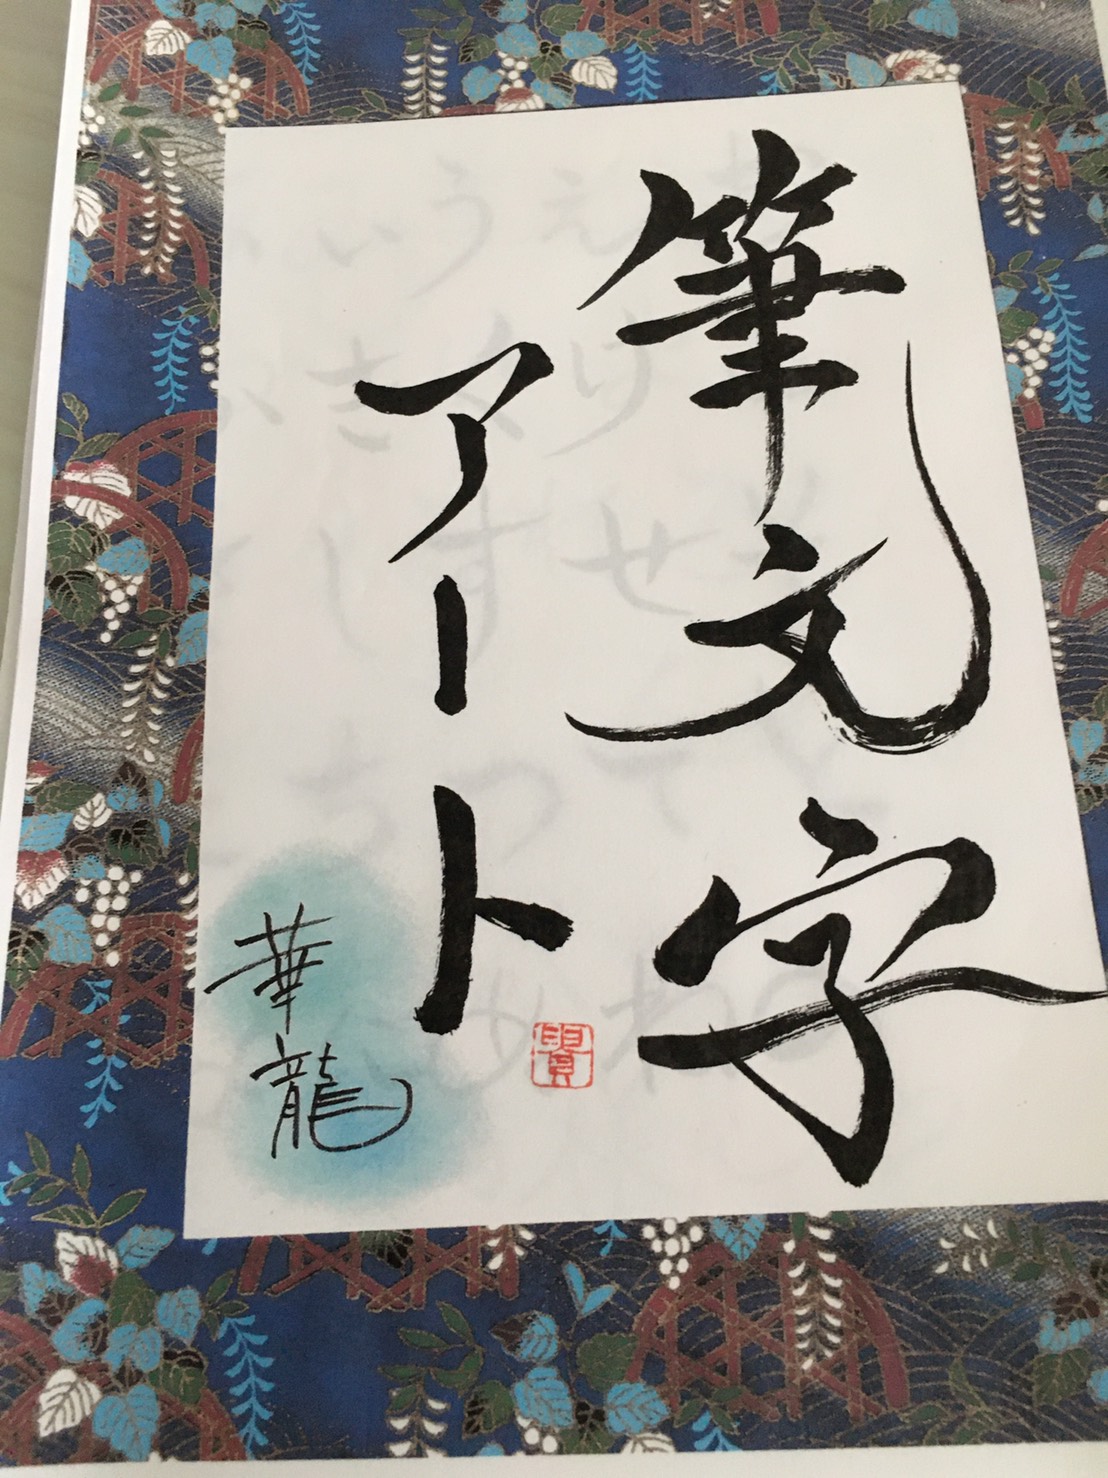 筆文字
アート
華龍